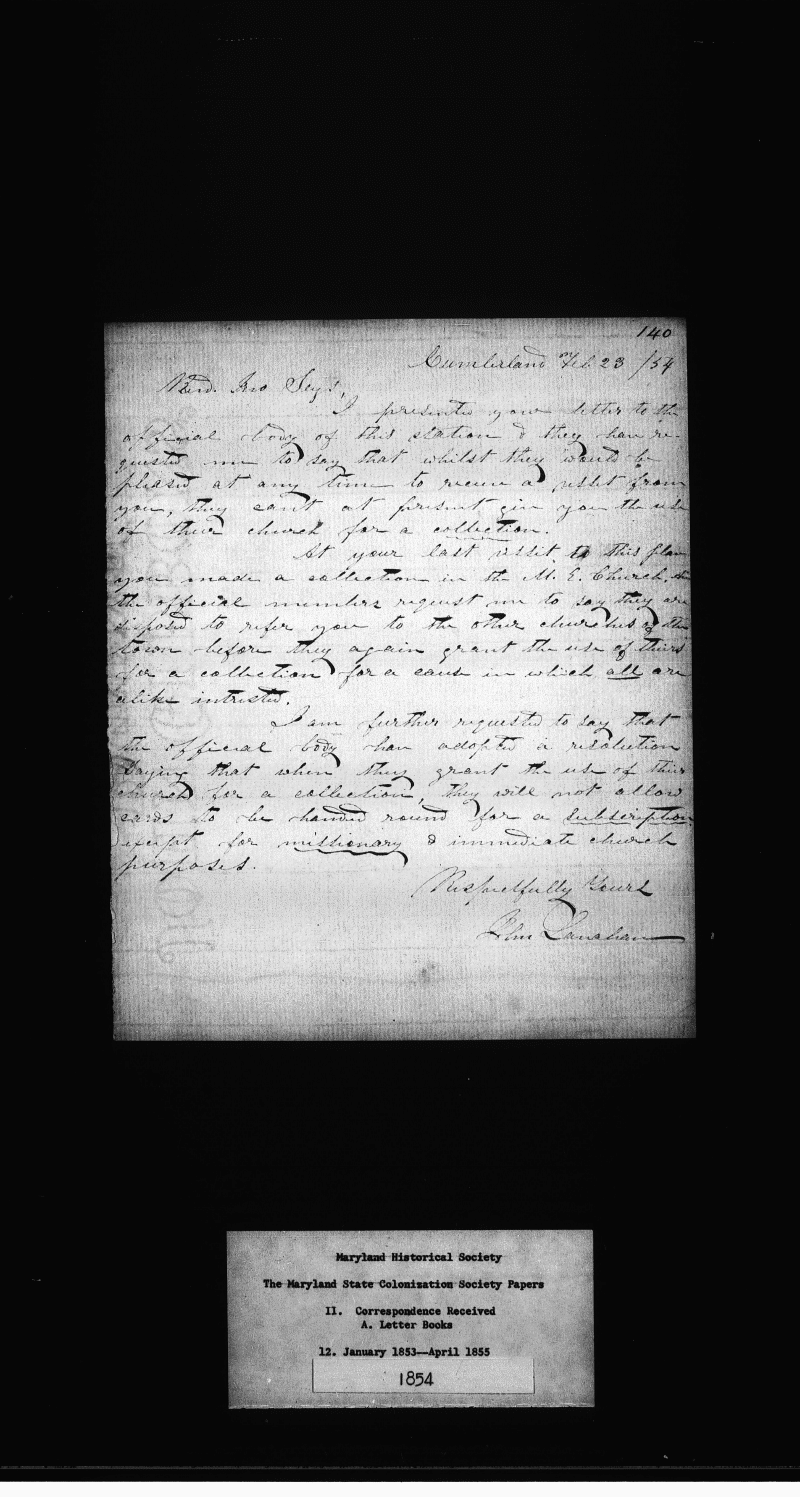 140
Cumberland Feb. 23 /54
Revd. Jno Seys,
I presented your letter to the
official body of this station & they have re-
quested me to say that whilst they would be
pleased at any time to receive a vissit from
you, they can't at present give you the use
of their church for a collection.
At your last vissit to this place
you made a collection in the M. E. Church,
the official members request me to say they are
disposed to refer you to the other churches of this
town before they again grant the use of theirs
for a collection for a cause in which all are
alike intrested.
I am further requested to say that
the official body have adopted a resolution
saying that when they grant the use of their
church for a collection, they will not allow
cards to be handed round for a subscription
except for missionary & immediate church
purposes.
Respectfully Yours
John Lanahan
Maryland Historical Society
The Maryland State Colonization Society Papers
II. Correspondence Received
A. Letter Books
12. January 1853--April 1855
1854